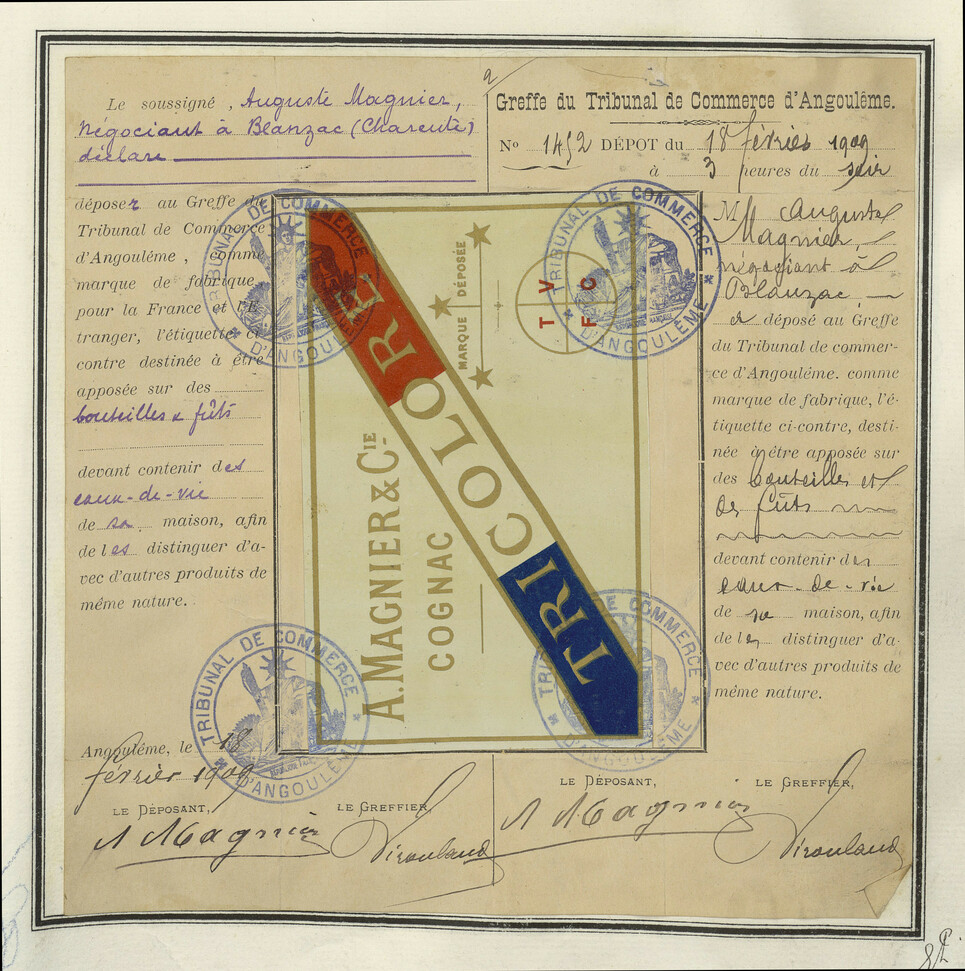 Le soussigné, Auguste Magnier,
Négociant à Blanzac (Charente)
déclare
déposer au Greffe du
Tribunal de Commerce
d'Angoulême, comme
marque de fabrique,
pour la France et l'E-
tranger, l'étiquette ci-
contre destinée à être
apposée sur des
bouteilles & fûts
devant contenir des
eaux-de-vie
de sa maison, afin
de les distinguer d'a-
vec d'autres produits de
même nature.
Angoulême, le 18
février 1909
LE DÉPOSANT,
LE GREFFIER,
A Magnier
TRICOLORE
MARQUE DÉPOSÉE
T V
F C
A. MAGNIER & CIE
COGNAC
TRIBUNAL DE COMMERCE
D'ANGOULÊME
TRIBUNAL DE COMMERCE
D'ANGOULÊME
TRIBUNAL DE COMMERCE
D'ANGOULÊME
TRIBUNAL DE COMMERCE
D'ANGOULÊME
Greffe du Tribunal de Commerce d'Angoulême.
No 1452 DÉPOT du 18 février 1909
à 3 heures du soir
M Auguste
Magnier,
négociant à
Blanzac,
a déposé au Greffe
du Tribunal de commer-
ce d'Angoulême. comme
marque de fabrique, l'é-
tiquette ci-contre, desti-
née à être apposée sur
des bouteilles et
des fûts
devant contenir des
eaux-de-vie
de sa maison, afin
de les distinguer d'a-
vec d'autres produits de
même nature.
LE DÉPOSANT,
LE GREFFIER,
A Magnier